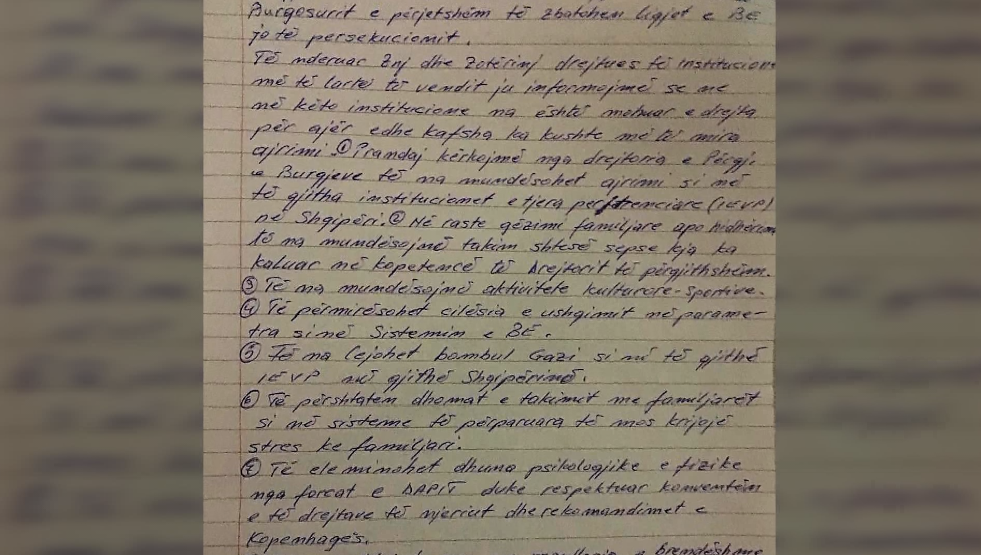 Burgosurit e përjetshëm të zbatohen ligjet e BE
jo të persekucionit.
Të nderuar Znj dhe Zotërinj drejtues të institucion
më të lartë të vendit ju informojmë se ne
në këto institucione na është mohuar e drejta
për ajër edhe kafsha ka kushte më të mira
ajrimi. ① Prandaj kërkojmë nga drejtoria e Përgj.
e Burgjeve të na mundësohet ajrimi si në
të gjitha institucionet e tjera penitenciare (IEVP)
në Shqipëri. ② Në raste gëzimi familjare apo hidhërim
të na mundësojnë takim shtesë sepse kja ka
kaluar në kopetencë të Drejtorit të përgjithshëm.
③ Të na mundësojnë aktivitete kulturore-Sportive.
④ Të përmirësohet cilësia e ushqimit në parame-
tra si në Sistemin e BE.
⑤ Të na lejohet bombul Gazi si në të gjithë
IEVP në gjithë Shqipërinë.
⑥ Të përshtaten dhomat e takimit me familjarët
si në sisteme të përparuara të mos krijojë
stres ke familjari.
⑦ Të eleminohet dhuna psikologjike e fizike
nga forcat e DAPIT duke respektuar konventën
e të drejtave të njeriut dhe rekomandimet e
Kopenhagës.
e brendëshme